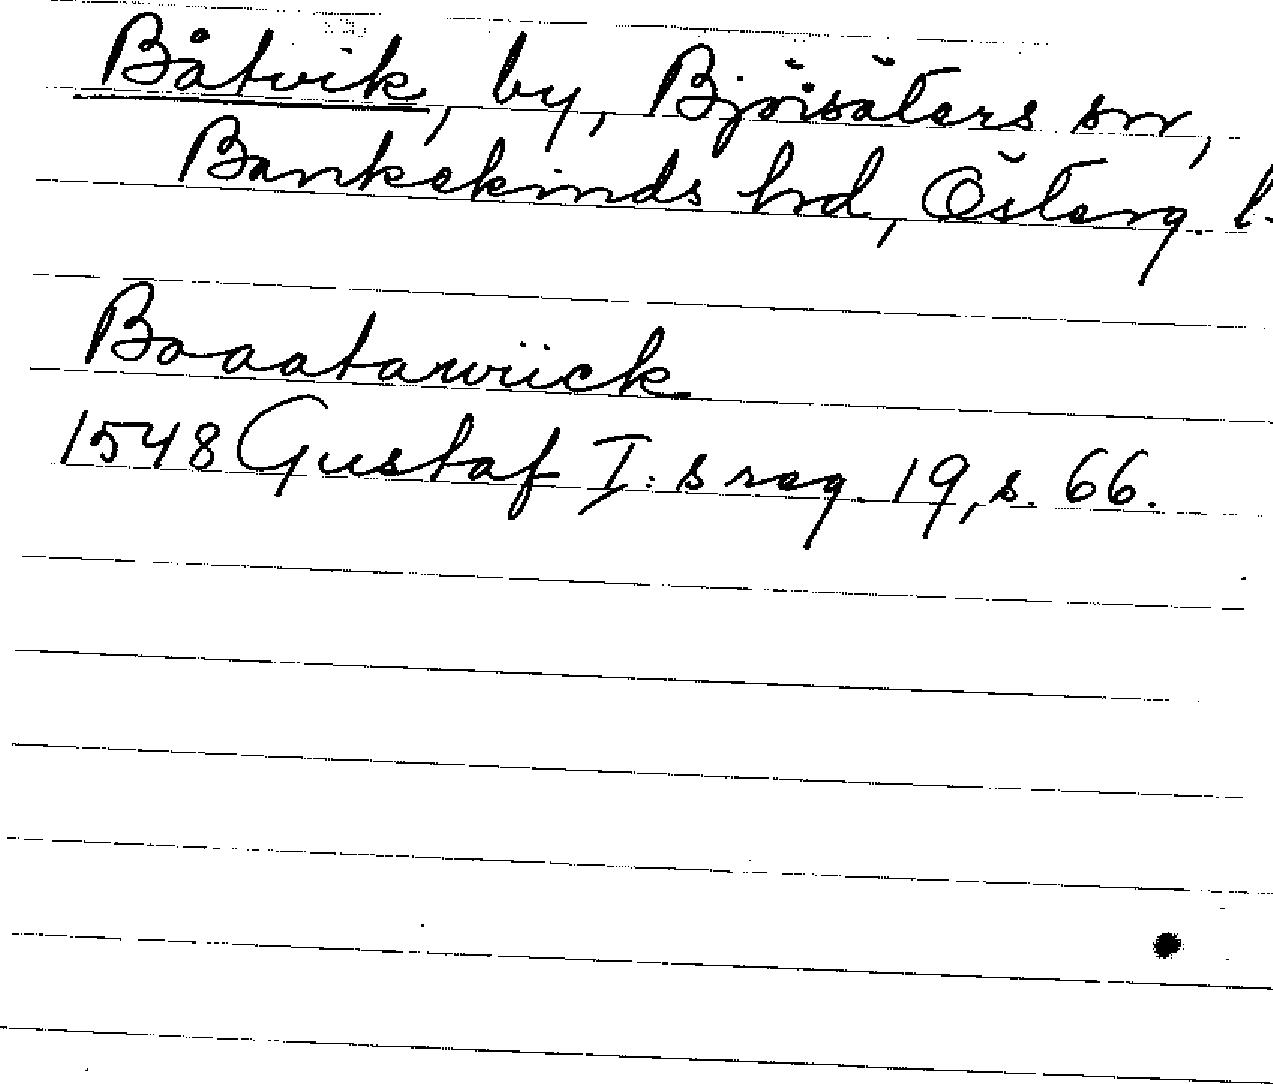 Båtvik, by, Björsäters sn,
Bankekinds hrd, Österg. l.
Boaatawiick
1548 Gustaf I:s reg. 19, s. 66.